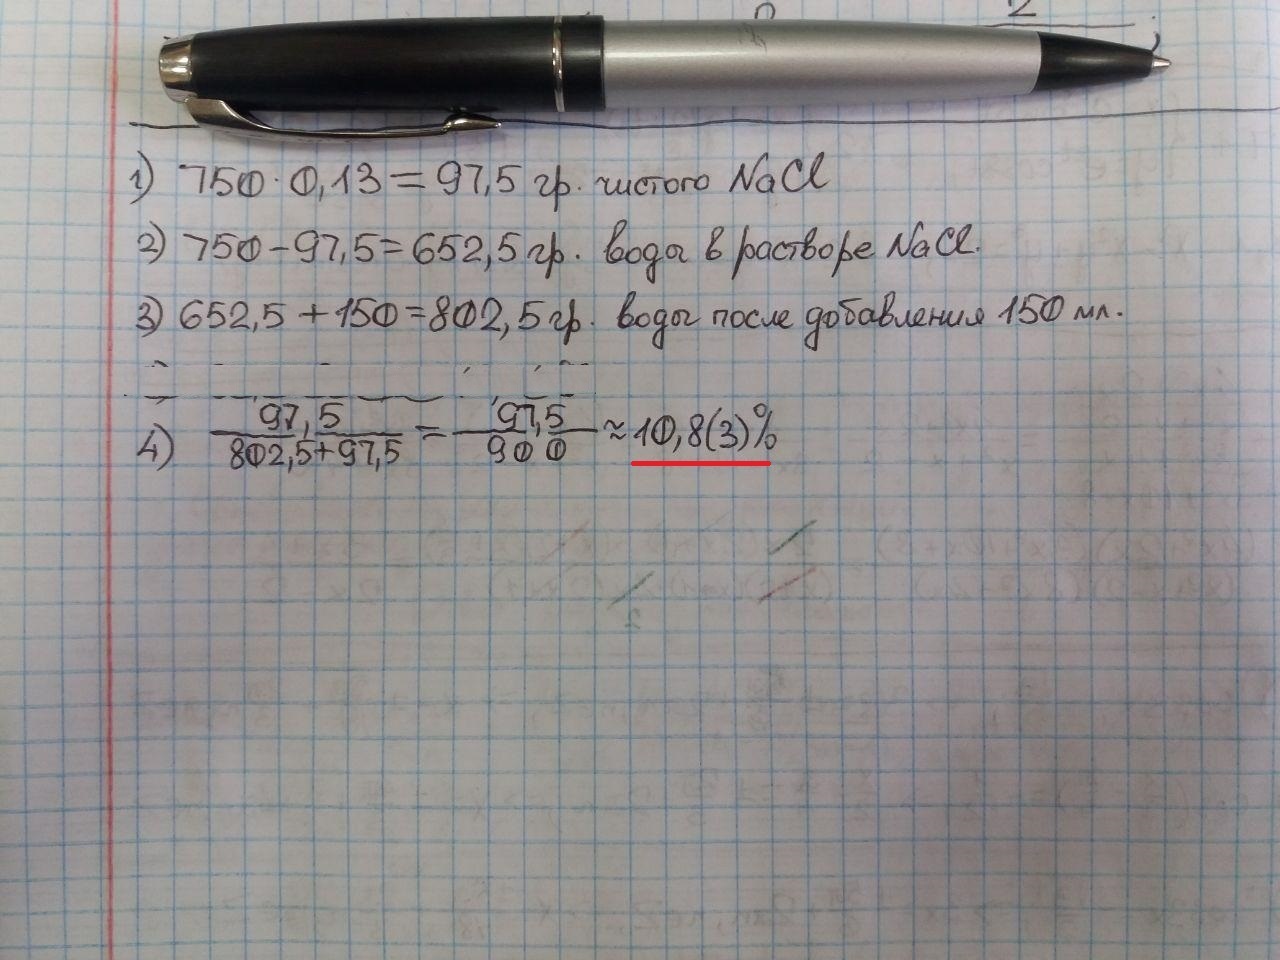 1) 750 · 0,13 = 97,5 гр. чистого NaCl
2) 750 - 97,5 = 652,5 гр. воды в растворе NaCl.
3) 652,5 + 150 = 802,5 гр. воды после добавления 150 мл.
4) 97,5 / 802,5+97,5 = 97,5 / 900 ≈ 10,8(3)%